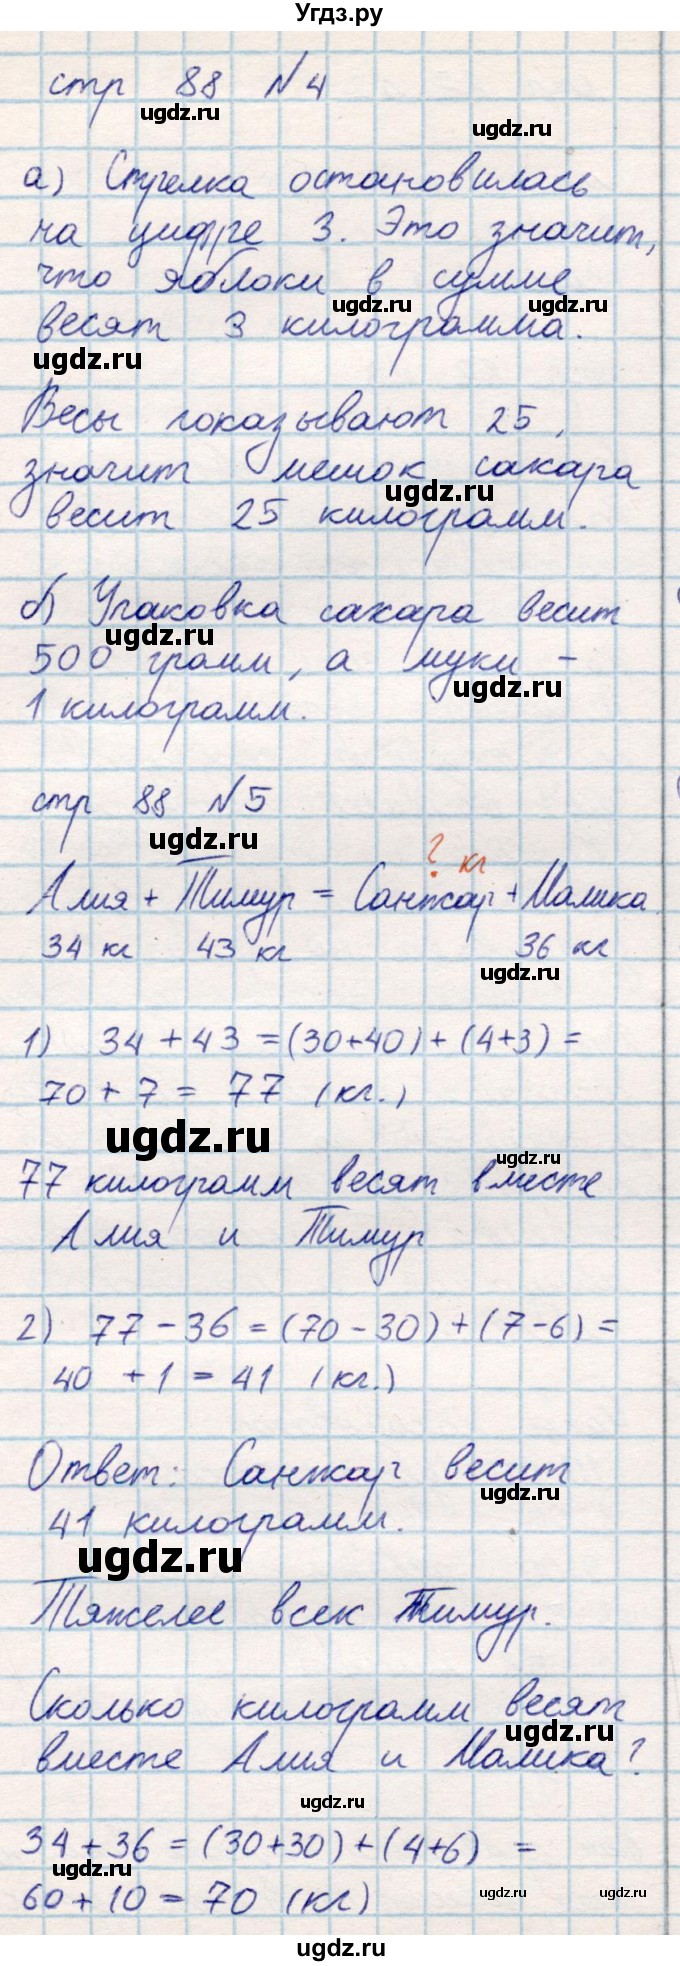 Угдз.ру
стр 88 №4
ugdz.ru
ugdz.ru
а) Стрелка остановилась
на цифре 3. Это значит,
что яблоки в сумме
ugdz.ru
ugdz.ru
весят 3 килограмма.
ugdz.ru
Весы показывают 25,
значит мешок сахара
ugdz.ru
весит 25 килограмм.
б) Упаковка сахара весит
ugdz.ru
500 грамм, а муки -
ugdz.ru
1 килограмм.
стр 88 №5
ugdz.ru
? кг
Алия + Тимур = Санжар + Малика
34 кг 43 кг 36 кг
ugdz.ru
1) 34 + 43 = (30+40) + (4+3) =
70 + 7 = 77 (кг.)
ugdz.ru
ugdz.ru
77 килограмм весят вместе
Алия и Тимур
2) 77 - 36 = (70 - 30) + (7-6) =
40 + 1 = 41 (кг.)
Ответ: Санжар весит
ugdz.ru
41 килограмм.
ugdz.ru
Тяжелее всех Тимур.
Сколько килограмм весят
ugdz.ru
вместе Алия и Малика?
ugdz.ru
34 + 36 = (30+30) + (4+6) =
ugdz.ru
60 + 10 = 70 (кг)
ugdz.ru
ugdz.ru
ugdz.ru